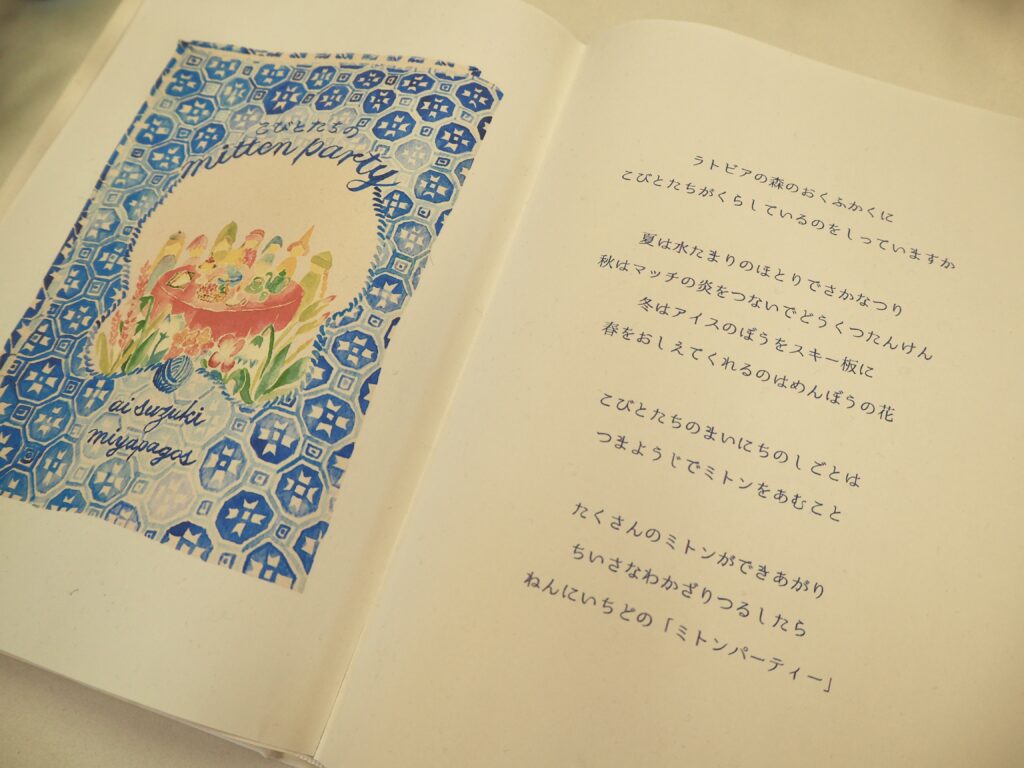 こびとたちの
mitten party
ai suzuki
miyapagos
ラトビアの森のおくふかくに
こびとたちがくらしているのをしっていますか
夏は水たまりのほとりでさかなつり
秋はマッチの炎をつないでどうくつたんけん
冬はアイスのぼうをスキー板に
春をおしえてくれるのはめんぼうの花
こびとたちのまいにちのしごとは
つまようじでミトンをあむこと
たくさんのミトンができあがり
ちいさなわかざりつるしたら
ねんにいちどの「ミトンパーティー」